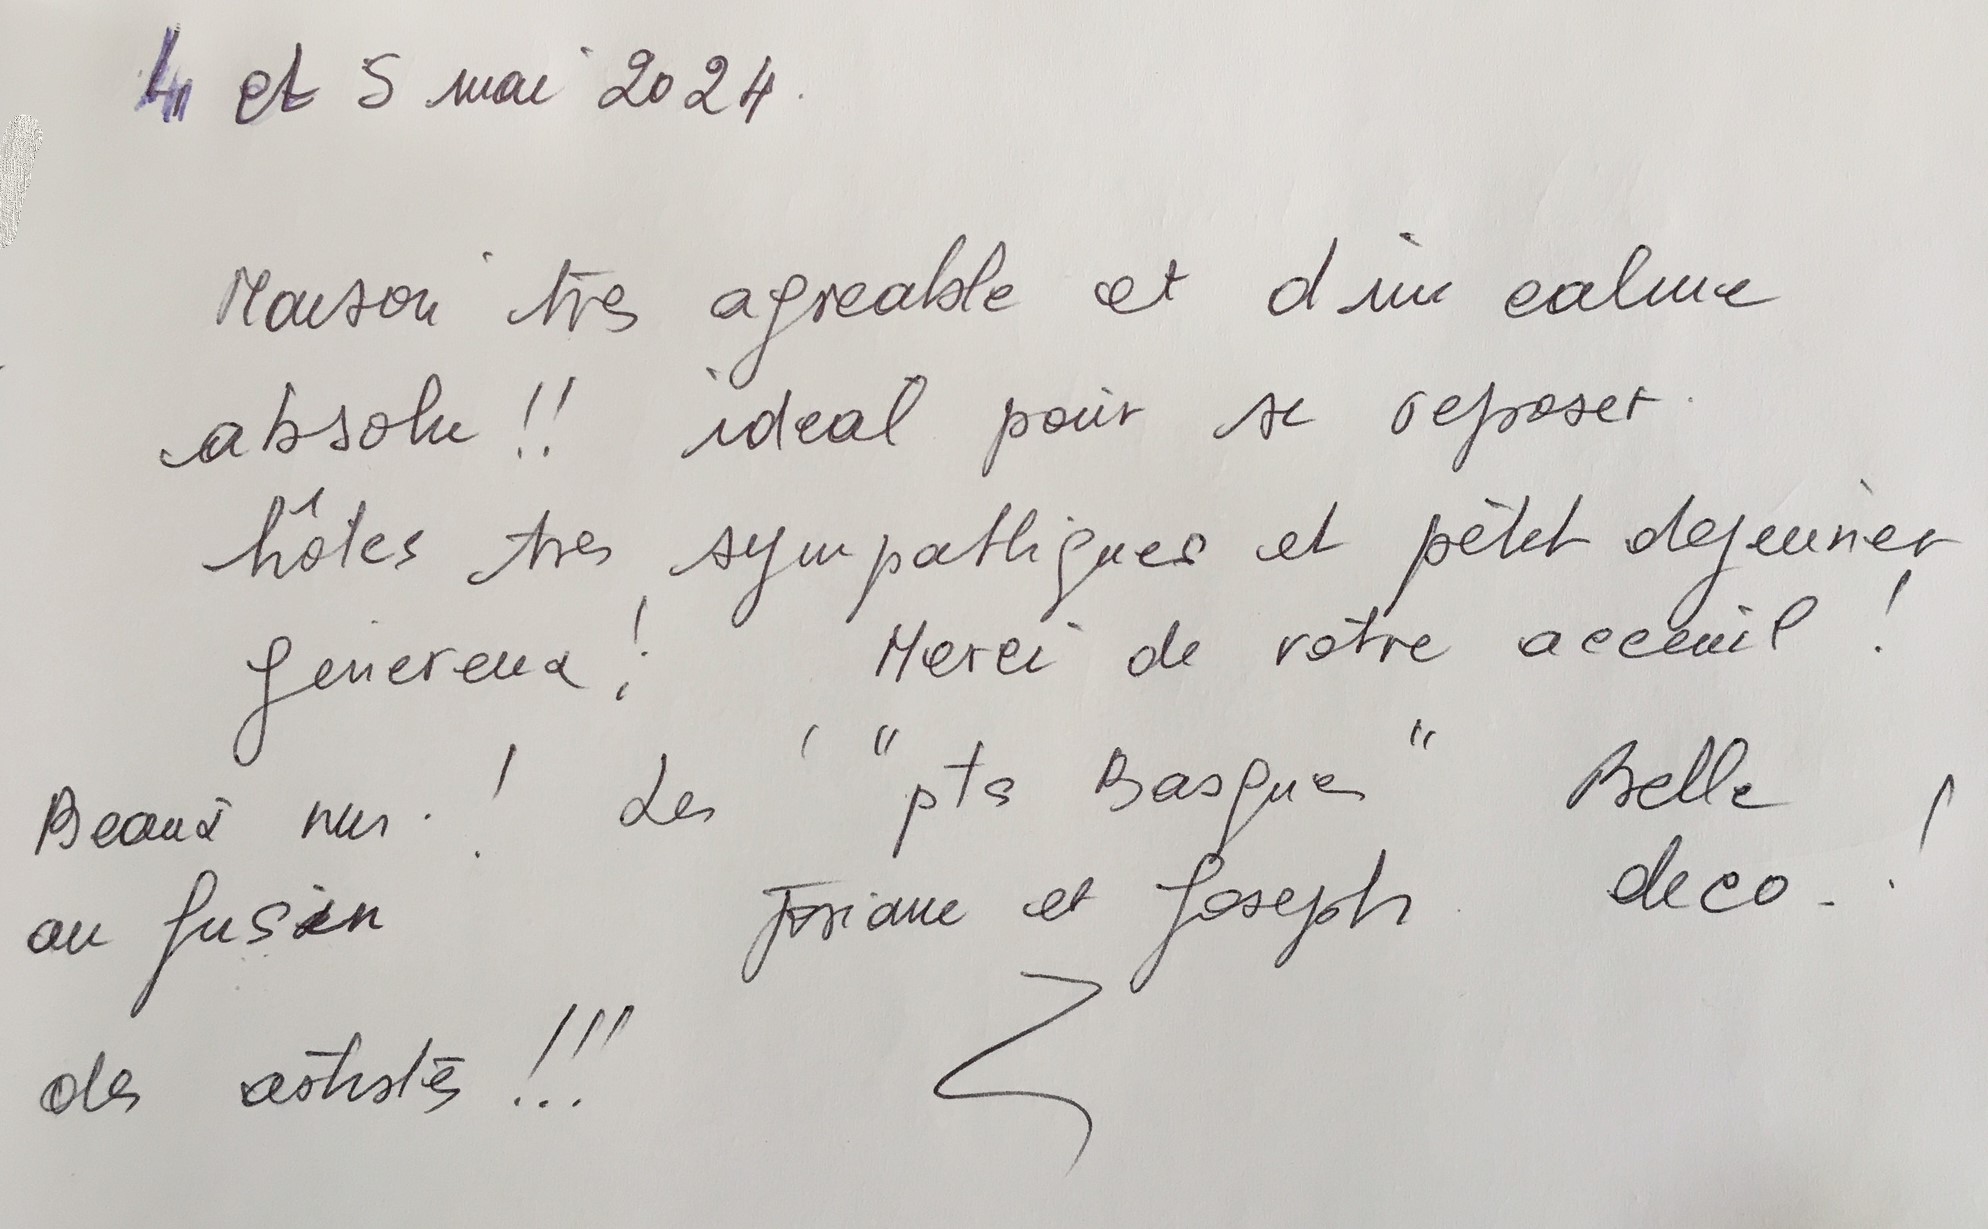 4 et 5 mai 2024.
Maison très agreable et d'un calme
absolu !! ideal pour se reposer.
hôtes tres sympathiques et petit dejeuner
genereux ! Merci de votre acceuil !
Beaux nus ! Les "pts Basques" Belle
au fusain Josiane et Joseph deco !
des artistes !!!